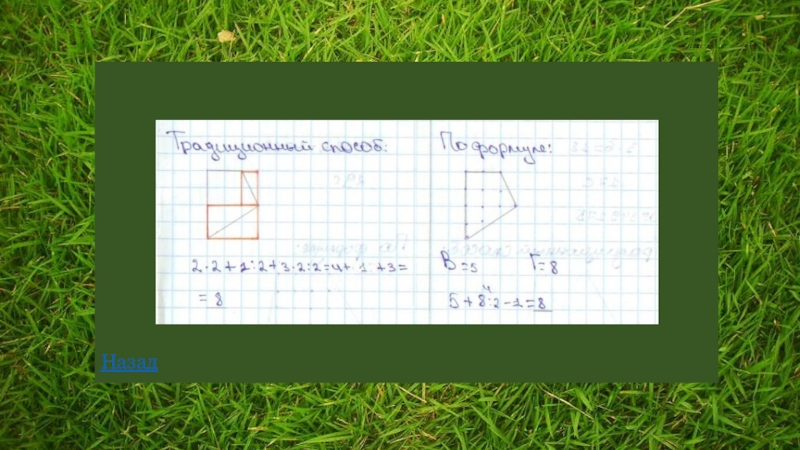 Традиционный способ:
2·2+2:2+3·2:2=4+1+3=
=8
По формуле:
В=5 Г=8
4
5+8:2-1=8
Назад